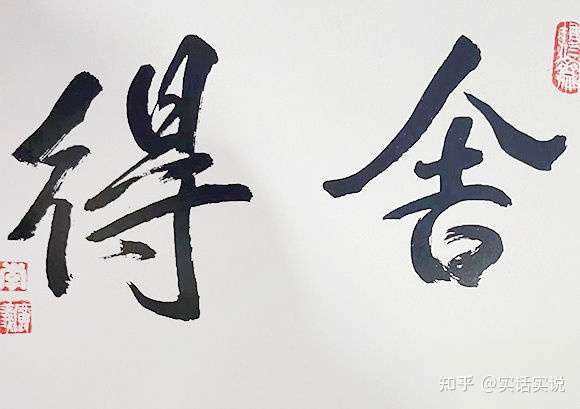 舍得
知乎 @实话实说